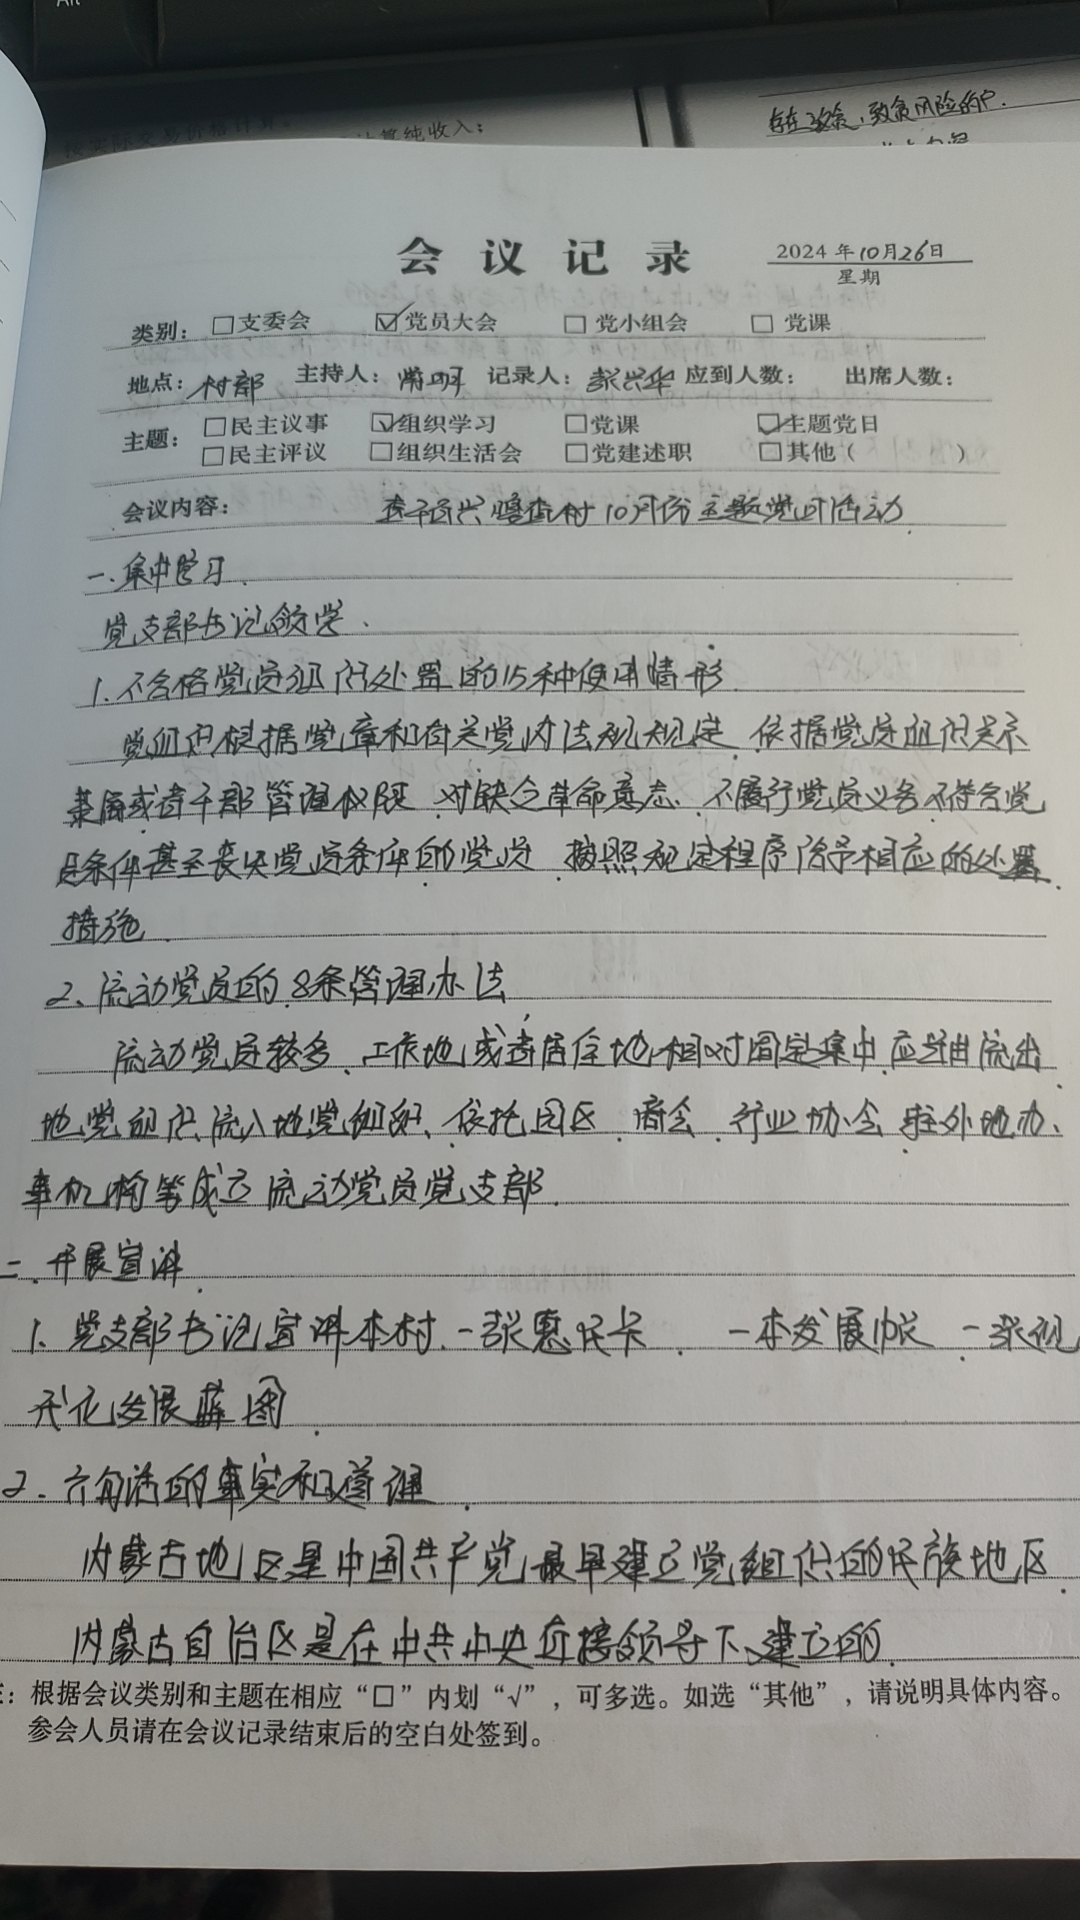 存在致贫、致贫风险的户.
按实际交易价格计算。
计算纯收入;
会议记录
2024年10月26日
星期
类别: □支委会 ☑党员大会 □党小组会 □党课
地点: 村部 主持人: 记录人: 兴华 应到人数: 出席人数:
主题: □民主议事 ☑组织学习 □党课 ☑主题党日
□民主评议 □组织生活会 □党建述职 □其他( )
会议内容: 村10月份主题党日活动
一.集中学习.
党支部书记领学.
1.不合格党员组织处置的15种使用情形
党组织根据党章和有关党内法规规定.依据党员组织关系
隶属或者干部管理权限.对缺乏革命意志.不履行党员义务.不符合党
员条件甚至丧失党员条件的党员.按照规定程序给予相应的处置
措施.
2、流动党员的8条管理办法
流动党员较多.工作地或者居住地相对固定集中.应当由流出
地党组织.流入地党组织.依托园区.商会.行业协会.驻外地办、
事机构等成立流动党员党支部.
二.开展宣讲.
1.党支部书记宣讲本村.一张惠民卡. 一本发展帐.一张视
形化发展蓝图.
2.六句话的事实和道理.
内蒙古地区是中国共产党最早建立党组织的民族地区.
内蒙古自治区是在中共中央直接领导下建立的.
注: 根据会议类别和主题在相应“□”内划“√”,可多选。如选“其他”,请说明具体内容。
参会人员请在会议记录结束后的空白处签到。